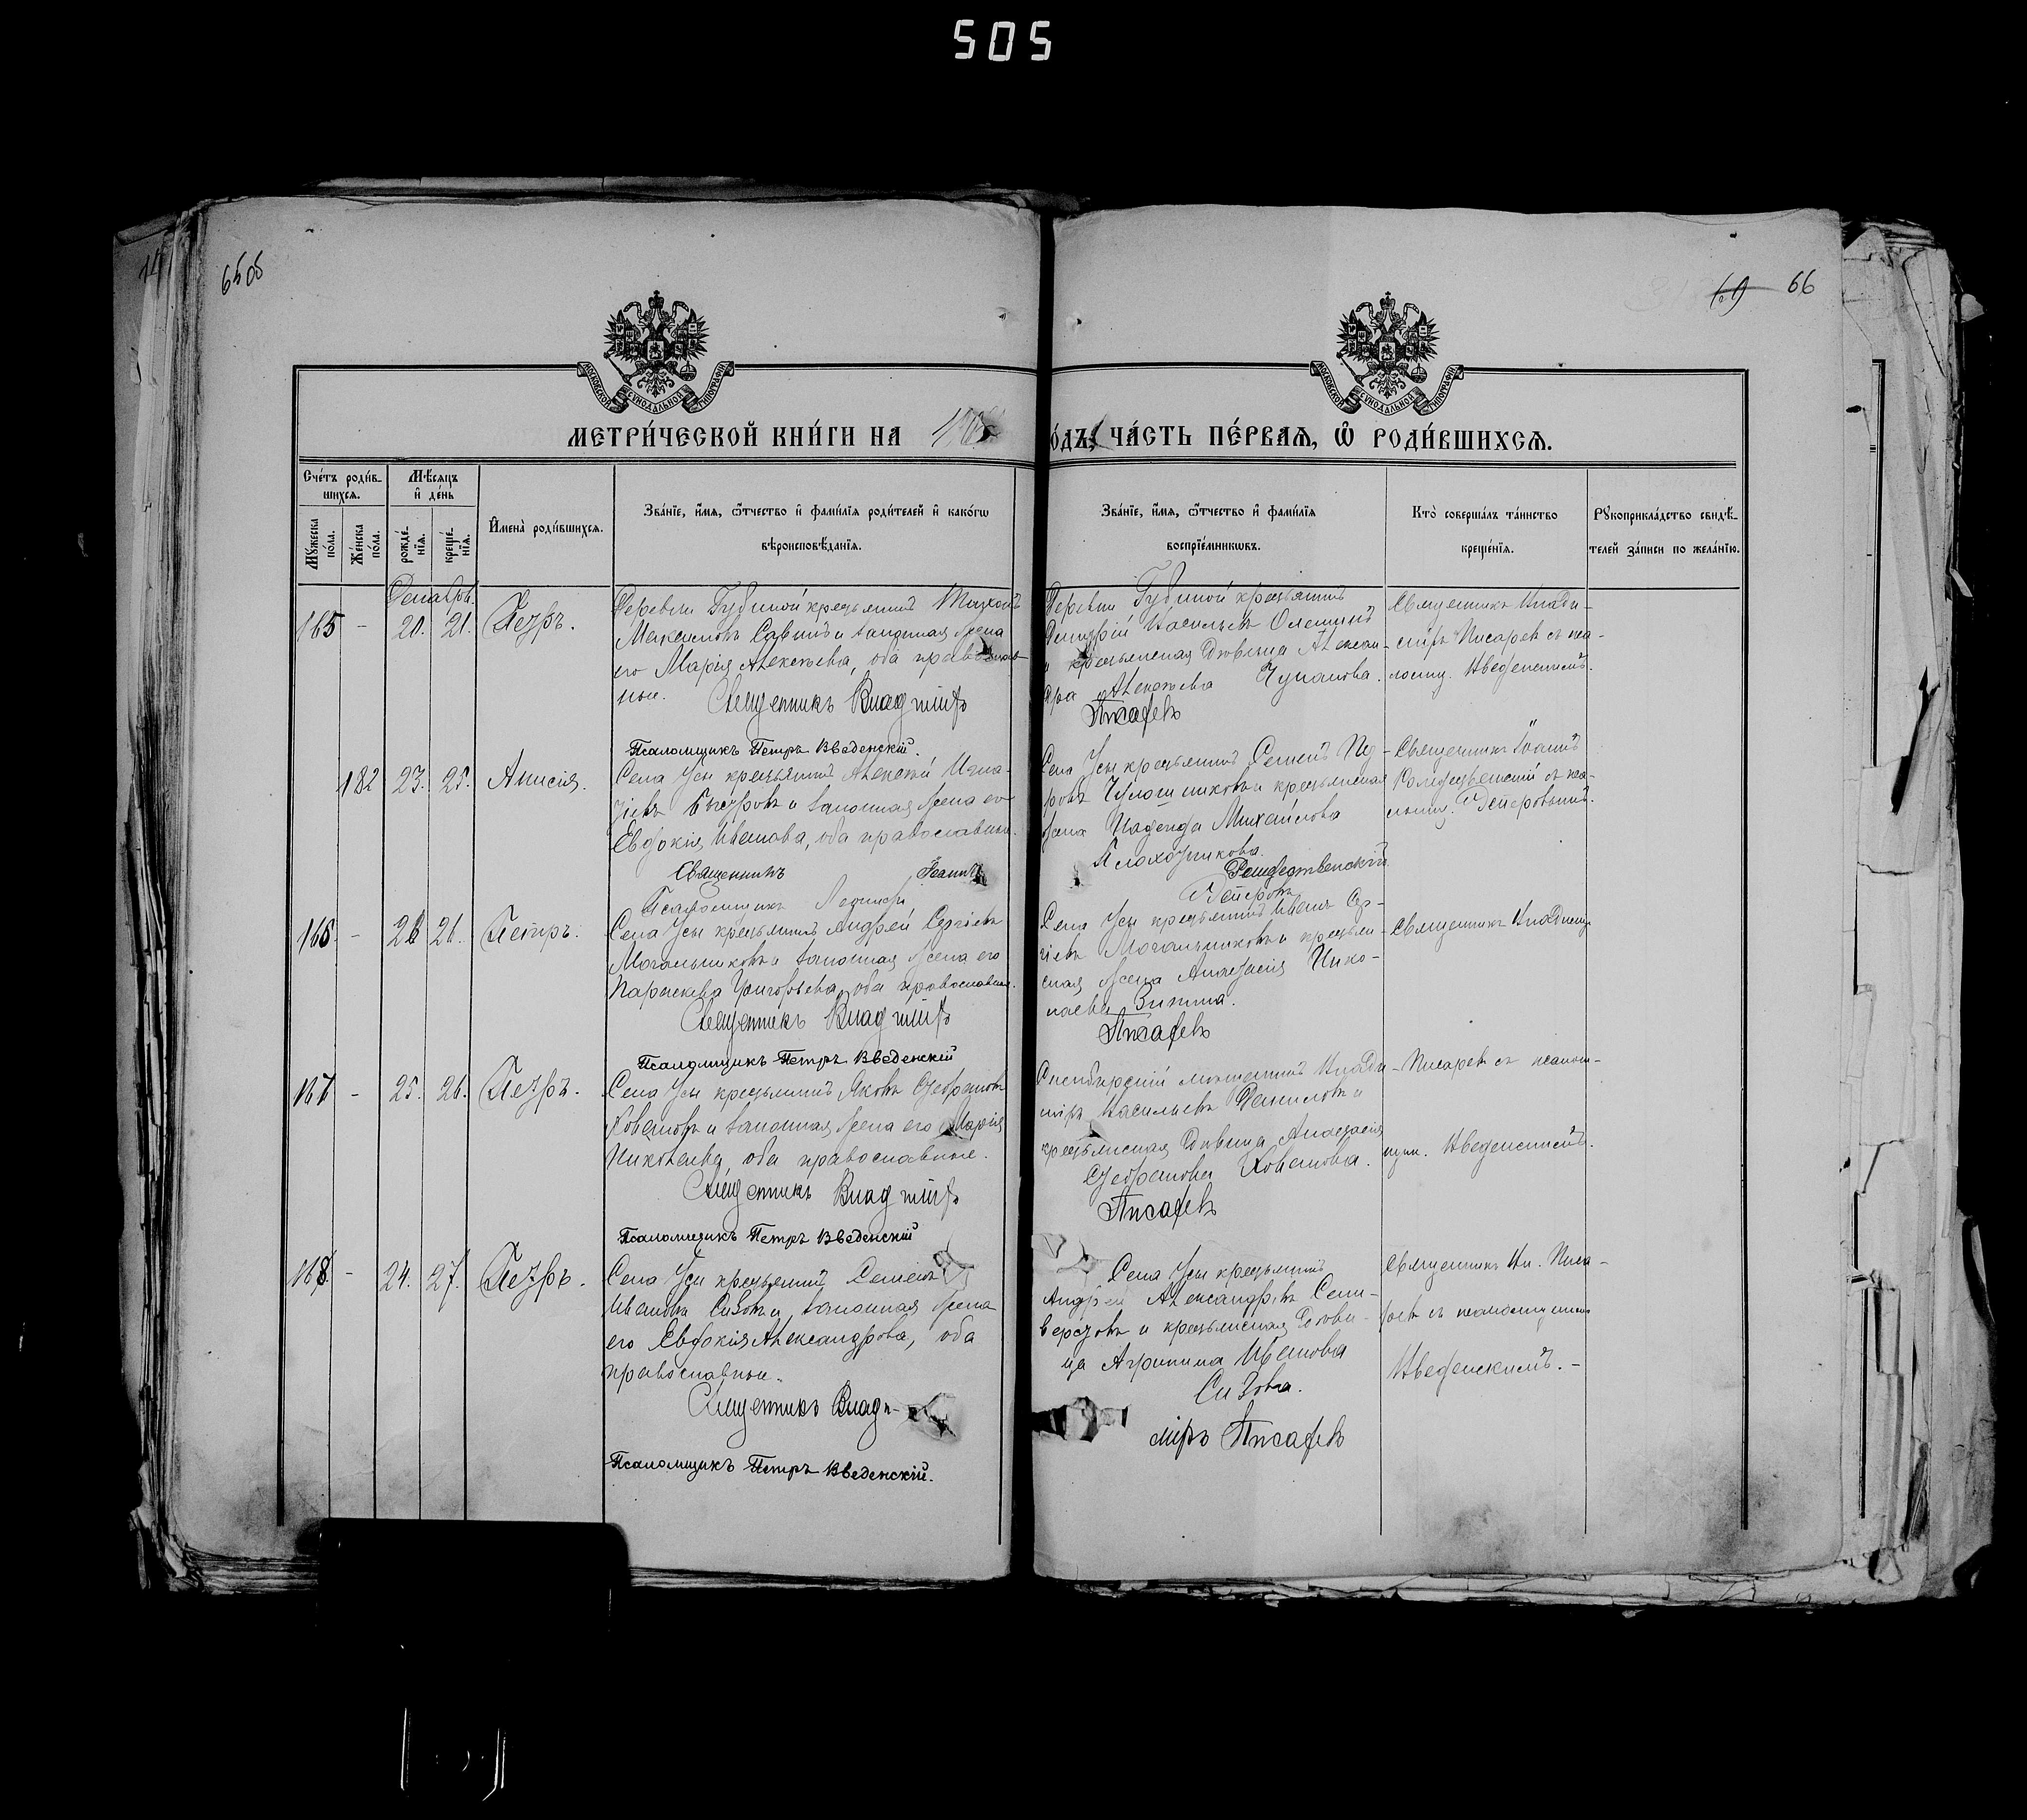 505
66
69 66
МОСКОВСКОЙ СѴНОДАЛЬНОЙ ТИПОГРАФІИ
МОСКОВСКОЙ СѴНОДАЛЬНОЙ ТИПОГРАФІИ
МЕТРИ́ЧЕСКОЙ КНИ́ГИ НА
О́ДЪ, ЧА́СТЬ ПЕ́РВАѦ, Ѡ҆ РОДИ́ВШИХСѦ.
Сче́тъ роди́в-
шихсѧ.
Мꙋ́жеска по́ла.
Же́нска по́ла.
Мѣ́сѧцъ
и҆ де́нь
рожде́-
нїѧ.
креще́-
нїѧ.
И҆мена̀ роди́вшихсѧ.
Зва́нїе, и҆́мѧ, ѻ҆́тчество и҆ фами́лїѧ роди́телей и҆ како́гѡ
вѣроисповѣ́данїѧ.
Зва́нїе, и҆́мѧ, ѻ҆́тчество и҆ фами́лїѧ
воспрїе́мникѡвъ.
Кто̀ соверша́лъ та́инство
креще́нїѧ.
Рꙋкоприкла́дство свидѣ́-
телей за́писи по жела́нїю.
Декабрь.
165 - 20. 21. Петръ.
Деревни Губиной крестьянинъ Тихонъ
Максимовъ Савинъ и законная жена
его Марія Алексѣева, оба православ-
ные.
Священникъ Владиміръ
Псаломщикъ Петръ Введенскій.
Деревни Губиной крестьянинъ
Димитрій Васильевъ
и крестьянская дѣвица Алексан-
дра Алексѣева Чуканова.
Писаревъ
Священникъ Влади-
міръ Писаревъ съ пса-
ломщ. Введенскимъ.
182 23. 25. Анисія.
Села Усы крестьянинъ Алексѣй Игна-
тіевъ и законная жена его
Евдокія Иванова, оба православные.
Священникъ Іоаннъ
Псаломщикъ
Села Усы крестьянинъ Семенъ
и крестьянская
жена Надежда Михайлова
Рождественскій
Священникъ Іоаннъ
Рождественскій съ пса-
ломщ.
166 - 26. Петръ.
Села Усы крестьянинъ Андрей Сергіевъ
Могильниковъ и законная жена его
Параскева Григорьева, оба православные.
Священникъ Владиміръ
Псаломщикъ Петръ Введенскій
Села Усы крестьянинъ Иванъ Сер-
гіевъ Могильниковъ и крестьян-
ская жена Анастасія Нико-
лаева Зимина.
Писаревъ
Священникъ Владиміръ
167 - 25. 26. Петръ.
Села Усы крестьянинъ Яковъ Стефановъ
Ховановъ и законная жена его Марія
Николаева, оба православные.
Священникъ Владиміръ
Псаломщикъ Петръ Введенскій
Симбирскій мѣщанинъ Влади-
міръ Васильевъ Даниловъ и
крестьянская дѣвица Анастасія
Стефанова Хованова.
Писаревъ
Писаревъ съ псалом-
щик. Введенскимъ.
168 - 24. 27. Петръ.
Села Усы крестьянинъ Семенъ
Ивановъ Сизовъ и законная жена
его Евдокія Александрова, оба
православные.
Священникъ Влади-
Псаломщикъ Петръ Введенскій.
Села Усы крестьянинъ
Андрей Александровъ Сели-
верстовъ и крестьянская дѣви-
ца Агрипина Иванова
Сизова.
міръ Писаревъ
Священникъ Вл. Писа-
ревъ съ псаломщикомъ
Введенскимъ.-